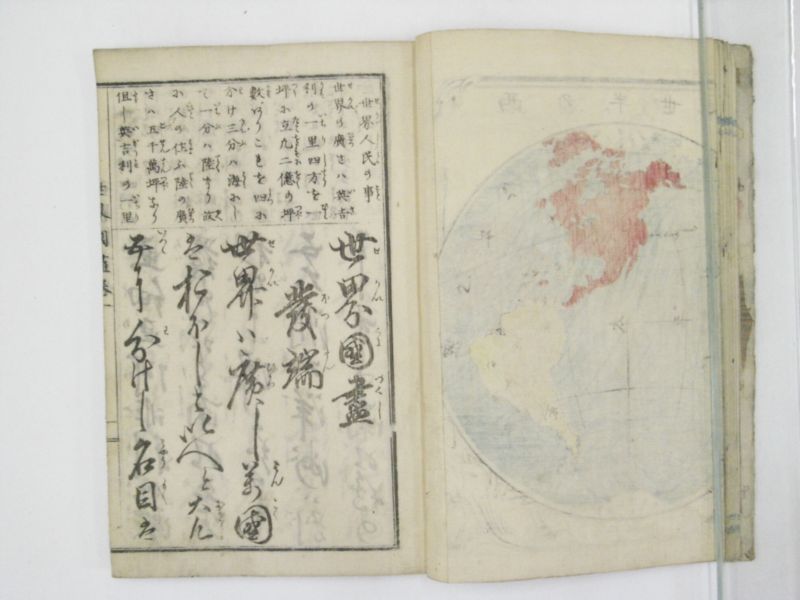 世界人民の事
世界の廣さハ英吉
利の一里四方を一
坪に立凡二億の坪
數ありこれを四に
分け三分ハ海にし
て一分ハ陸なり故
に人の住ふ陸の廣
さハ五千萬坪なり
但し英吉利の一里
世界國盡
發端
世界ハ廣し萬國
はおほしといへど大凡
五に分けし名目は
世界國盡 卷一